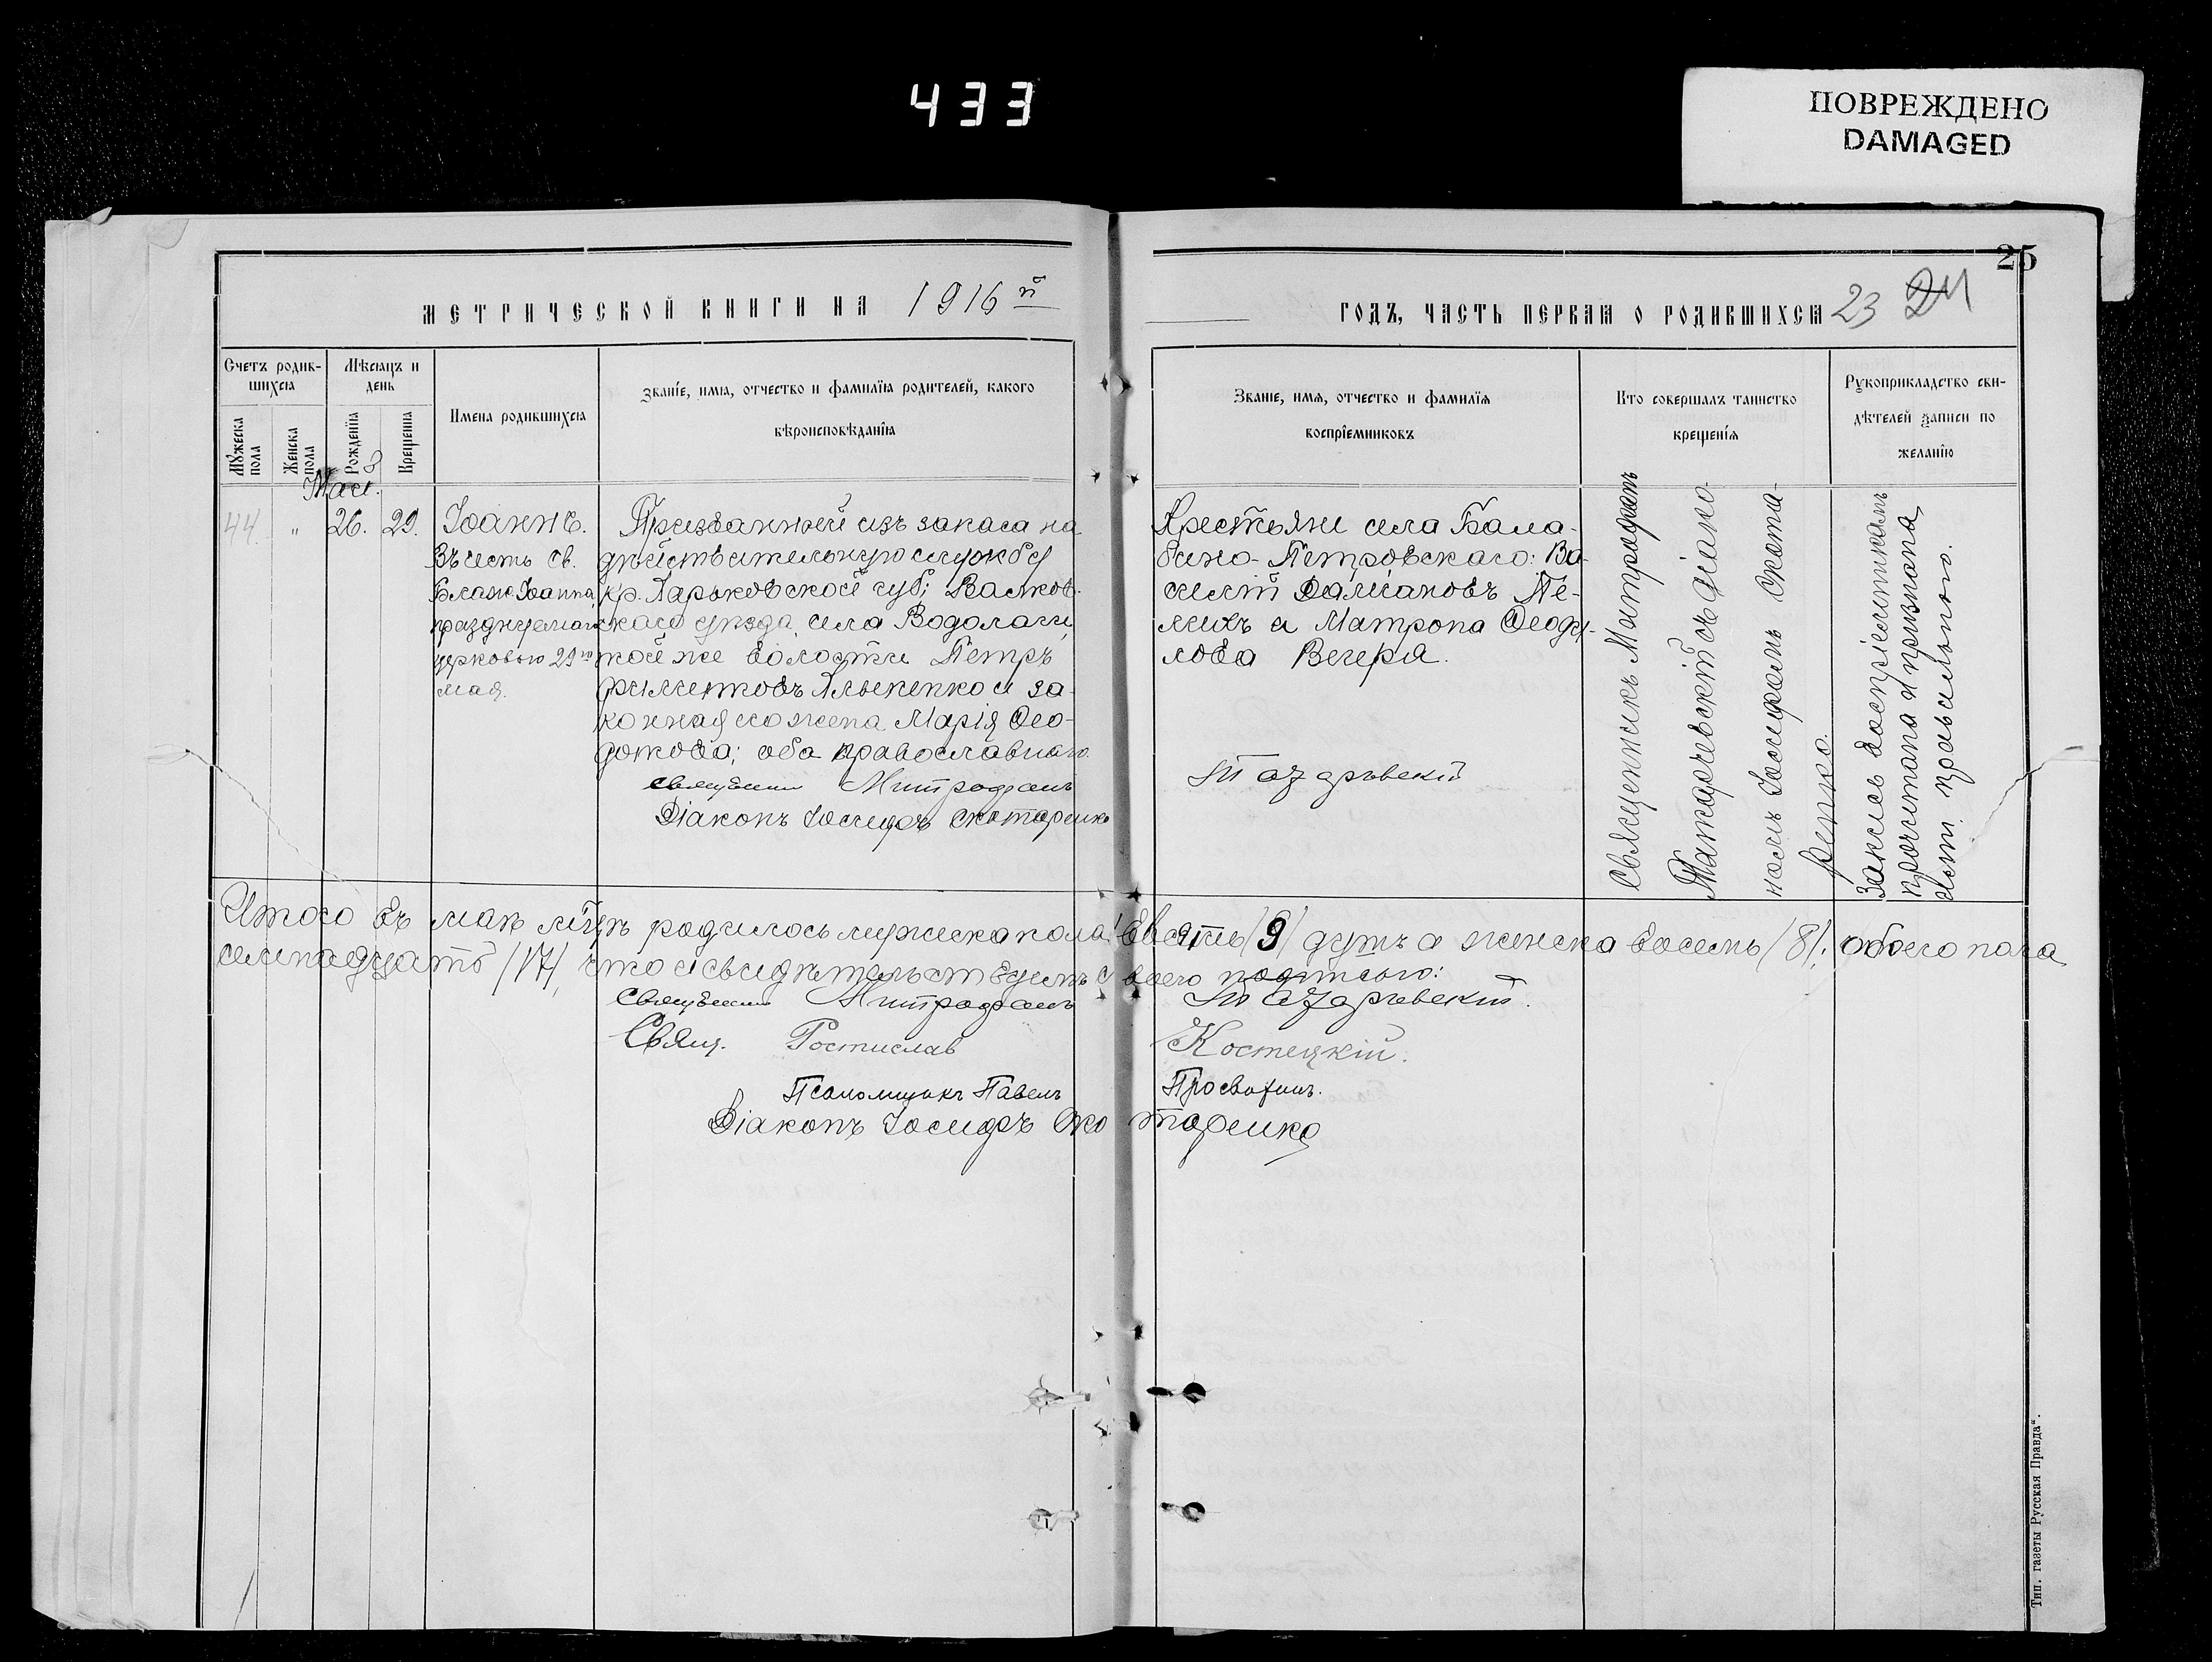 433
ПОВРЕЖДЕНО
DAMAGED
25
МЕТРИЧЕСКОЙ КНИГИ НА 1916й
ГОДЪ, ЧАСТЬ ПЕРВАЯ О РОДИВШИХСЯ 23 24
Счетъ родившихся
Мужеска пола
Женска пола
Мѣсяцъ и день
Рожденїя
Крещенїя
Имена родившихся
Званїе, имя, отчество и фамилїя родителей, какого
вѣроисповѣданїя
Званїе, имя, отчество и фамилїя
воспрїемниковъ
Кто совершалъ таинство
крещенїя
Рукоприкладство сви-
дѣтелей записи по
желанїю
Май.
44. " 26. 29.
Іоаннъ.
Въ честь св.
Блаж. Іоанна,
празднуемаго
церковью 29го
мая.
Призванный изъ запаса на
дѣйствительную службу
кр. Харьковской губ; Валков-
скаго уѣзда, села Водолаги,
той же волости Петръ
Филиповъ Ильченко и за-
конная его жена Марія Ѳео-
дотова; оба православнаго.
священникъ Митрофанъ
Діаконъ Іосифъ Скотаренко
Макаревскій
Крестьяне села Бала-
бино-Петровскаго: Ва-
силій Даміановъ Пе-
лихъ и Матрона Ѳеоду-
лова Вечеря.
Священникъ Митрофанъ
Макаревскій съ діако-
номъ Іосифомъ Скота-
ренко.
Запись воспріемникамъ
прочитана и признана
ими правильною.
Итого въ маѣ м-цѣ родилось мужеска пола девять /9/ душъ а женска восемь /8/; обоего пола
семнадцать /17/, что и свидѣтельствуемъ своего подписью:
Священникъ Митрофанъ Макаревскій.
Свящ. Ростислав Костецкій.
Псаломщикъ Павелъ Просвотинъ.
Діаконъ Іосифъ Скотаренко
Тип. газеты Русская Правда“.